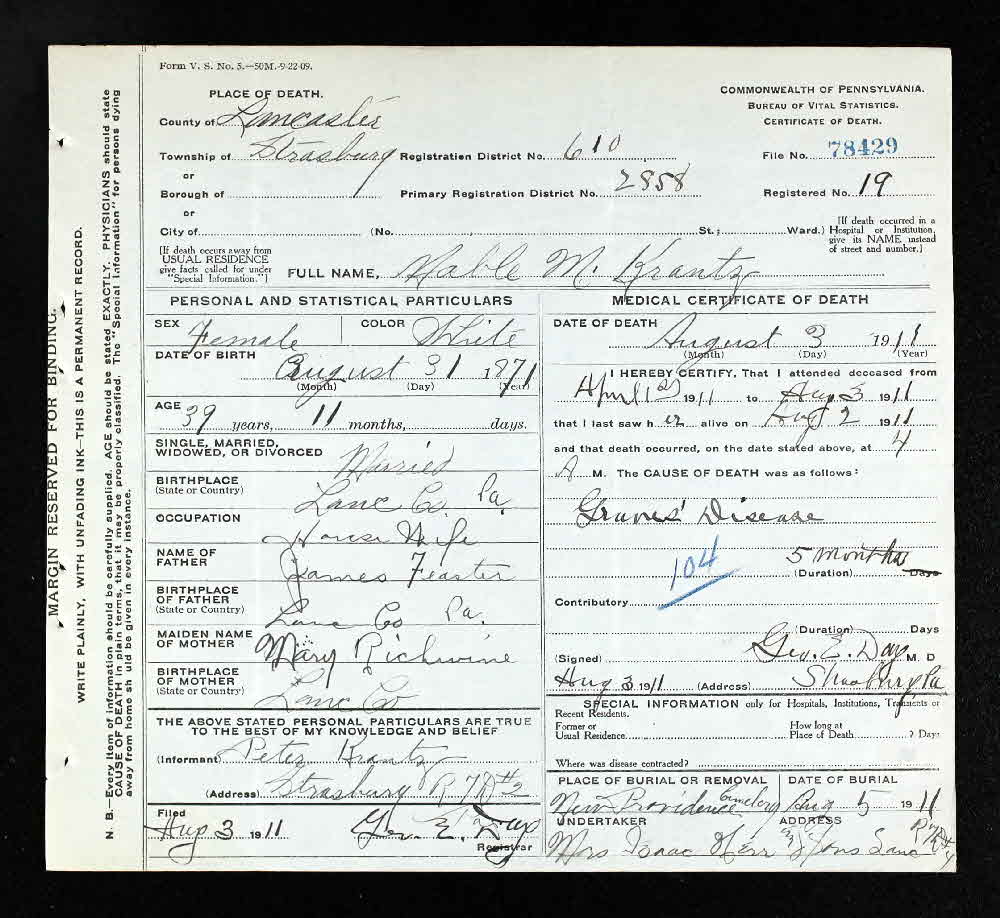 Form V. S. No. 5.—50M.-9-22-09.
PLACE OF DEATH.
County of Lancaster
Township of Strasburg
or
Borough of
or
City of
(No.
St.;
Ward.)
Registration District No. 610
Primary Registration District No. 2858
COMMONWEALTH OF PENNSYLVANIA.
BUREAU OF VITAL STATISTICS.
CERTIFICATE OF DEATH.
File No. 78429
Registered No. 19
[If death occurred in a
Hospital or Institution,
give its NAME instead
of street and number.]
[If death occurs away from
USUAL RESIDENCE
give facts called for under
"Special Information."]
FULL NAME, Mable M. Krantz
PERSONAL AND STATISTICAL PARTICULARS
SEX Female
COLOR White
DATE OF BIRTH
August 31 1871
(Month) (Day) (Year)
AGE 39 years, 11 months, days.
SINGLE, MARRIED,
WIDOWED, OR DIVORCED Married
BIRTHPLACE
(State or Country) Lanc Co. Pa.
OCCUPATION
House Wife
NAME OF
FATHER James Feaster
BIRTHPLACE
OF FATHER
(State or Country) Lanc Co Pa.
MAIDEN NAME
OF MOTHER Mary Richwine
BIRTHPLACE
OF MOTHER
(State or Country) Lanc Co
THE ABOVE STATED PERSONAL PARTICULARS ARE TRUE
TO THE BEST OF MY KNOWLEDGE AND BELIEF
(Informant) Peter Krantz
(Address) Strasburg R 7 D #2
Filed
Aug 3 1911 Geo. E. Day
Registrar
MEDICAL CERTIFICATE OF DEATH
DATE OF DEATH
August 3 1911
(Month) (Day) (Year)
I HEREBY CERTIFY, That I attended deceased from
April 1911 to Aug 3 1911
that I last saw her alive on Aug 2 1911
and that death occurred, on the date stated above, at 4
A M. The CAUSE OF DEATH was as follows:
Graves' Disease
104
5 Months
(Duration) Days
Contributory
(Duration) Days
(Signed) Geo. E. Day M. D
Aug 3 1911 (Address) Strasburg Pa
SPECIAL INFORMATION only for Hospitals, Institutions, Transients or
Recent Residents.
Former or
Usual Residence
How long at
Place of Death ? Days
Where was disease contracted?
PLACE OF BURIAL OR REMOVAL
New Providence Cemetery
DATE OF BURIAL
Aug 5 1911
UNDERTAKER
Mrs Isaac Herr & Sons
ADDRESS
Lanc
MARGIN RESERVED FOR BINDING.
WRITE PLAINLY, WITH UNFADING INK—THIS IS A PERMANENT RECORD.
N. B.—Every item of information should be carefully supplied. AGE should be stated EXACTLY. PHYSICIANS should state
CAUSE OF DEATH in plain terms, that it may be properly classified. The "Special Information" for persons dying
away from home should be given in every instance.